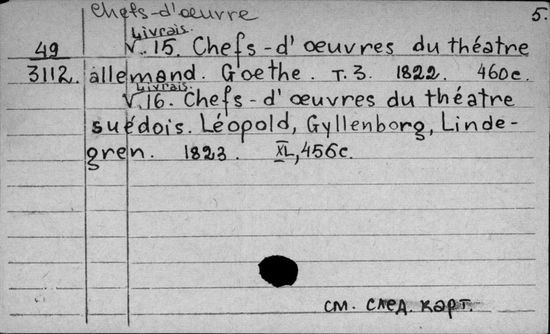 Chefs-d'œuvre 5.
Livrais.
49 V. 15. Chefs-d'œuvres du théatre
3112. allemand. Goethe. т.3. 1822. 460с.
Livrais.
V. 16. Chefs-d'œuvres du théatre
suédois. Léopold, Gyllenborg, Linde-
gren. 1823. XL, 456с.
см. след. карт.